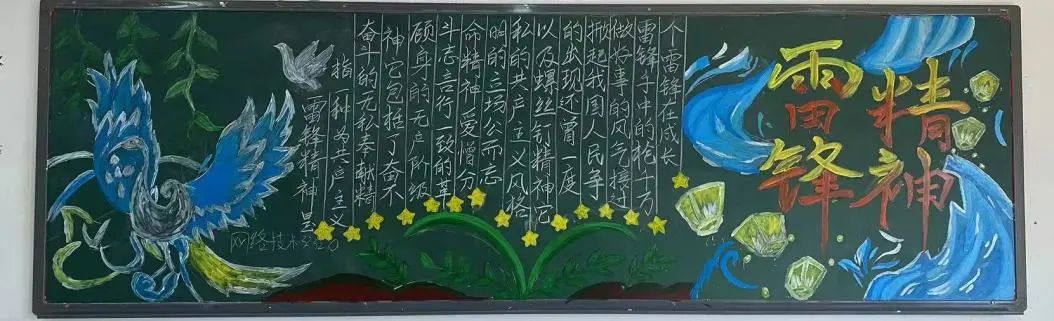 雷锋精神是
指一种为共产主义
奋斗的无私奉献精
神它包括了奋不
顾身的无产阶级
斗志言行一致的革
命精神爱憎分
明的立场公而忘
私的共产主义风格
以及螺丝钉精神它
的出现还曾一度
掀起我国人民争
做好事的风气接过
雷锋手中的枪千万
个雷锋在成长
网络技术
雷锋
精神